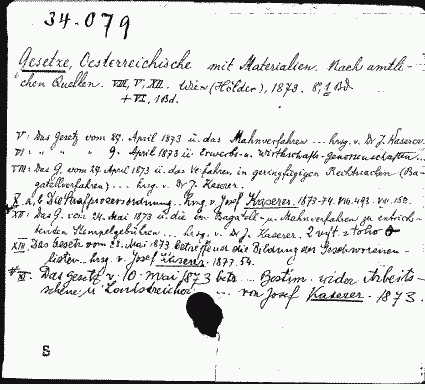 34-079
Gesetze, Oesterreichische mit Materialien. Nach amtli-
chen Quellen. VIII, V, XII. Wien (Hölder), 1873. 8°, 1 Bd.
+ VI, 1 Bd.
V: Das Gesetz vom 27. April 1873 ü. das Mahnverfahren ... hrsg. v. Dr J. Kaserer.
VI: " " " 9. April 1873 ü. Erwerbs- u. Wirthschafts-Genossenschaften ...
VIII: Das G. vom 27. April 1873 ü. das Verfahren in geringfügigen Rechtssachen (Ba-
gatellverfahren) ... hrsg. v. Dr J. Kaserer.
X. a, b Die Strafprocessordnung. hrsg. v. Josef Kaserer. 1873-74. VIII. 493. VII.
XII: Das G. vom 24. Mai 1873 ü. die im Bagatell- u. Mahnverfahren zu entrich-
tenden Stempelgebühren ... hrsg. v. Dr J. Kaserer. 2
XIII Das Gesetz vom 23. Mai 1873 betreffend die Bildung der Geschworenen-
listen. hrsg. v. Josef Kaserer. 1877. 54.
XI. Das Gesetz v. 10. Mai 1873 betr. ... Bestim. wider Arbeits-
scheue u. Landstreicher ... von Josef Kaserer. 1873.
S